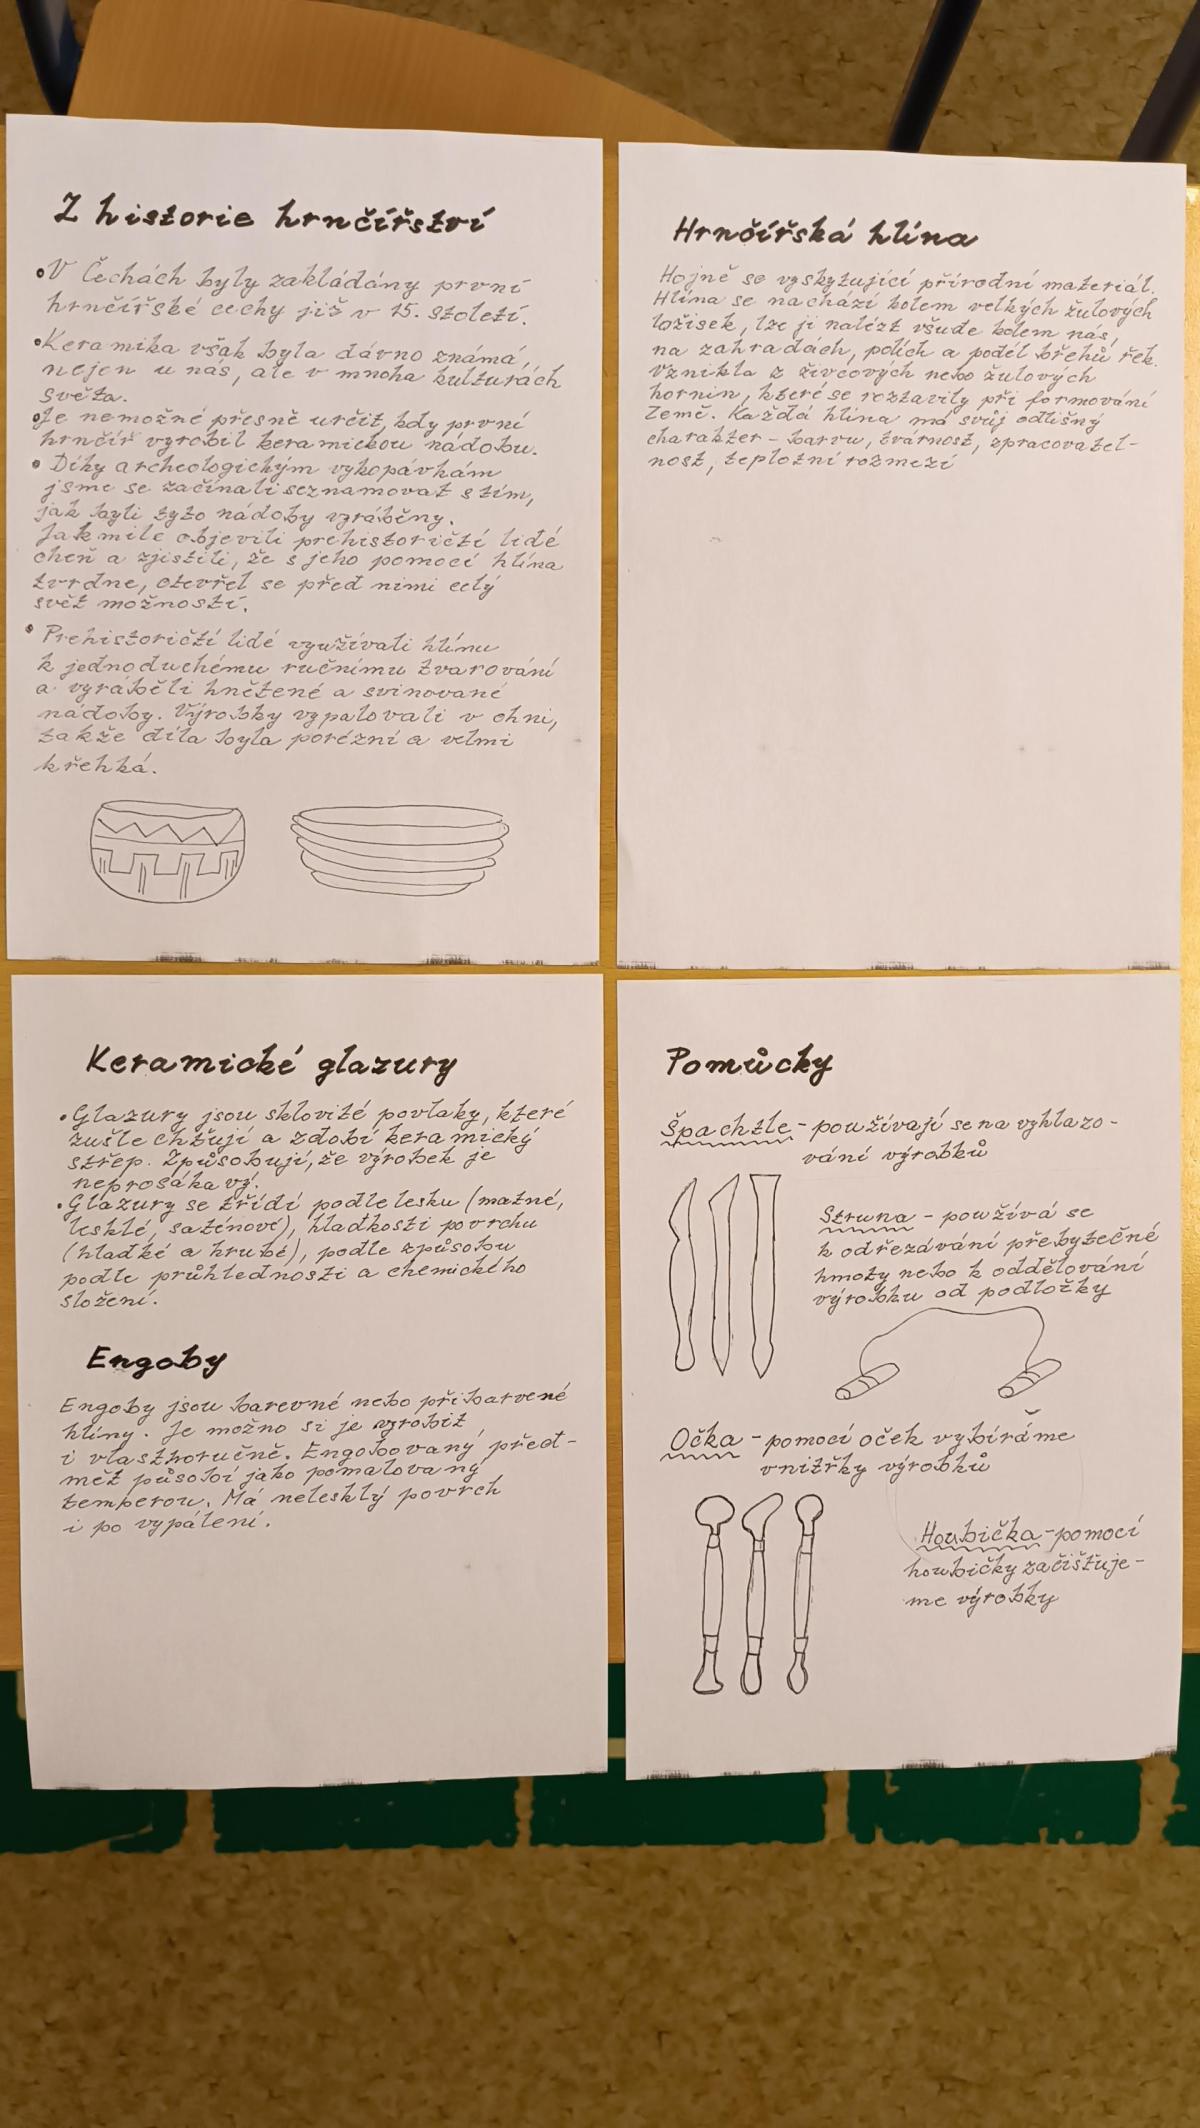 Z historie hrnčířství
• V Čechách byly zakládány první
hrnčířské cechy již v 15. století.
• Keramika však byla dávno známá,
nejen u nás, ale v mnoha kulturách
světa.
• Je nemožné přesně určit, kdy první
hrnčíř vyrobil keramickou nádobu.
• Díky archeologickým vykopávkám
jsme se začínali seznamovat s tím,
jak byli tyto nádoby vyráběny.
Jakmile objevili prehistoričtí lidé
oheň a zjistili, že s jeho pomocí hlína
tvrdne, otevřel se před nimi celý
svět možností.
• Prehistoričtí lidé využívali hlínu
k jednoduchému ručnímu tvarování
a vyráběli hnětené a svinované
nádoby. Výrobky vypalovali v ohni,
takže díla byla porézní a velmi
křehká.
Hrnčířská hlína
Hojně se vyskytující přírodní materiál.
Hlína se nachází kolem velkých žulových
ložisek, lze ji nalézt všude kolem nás,
na zahradách, polích a podél břehů řek.
Vznikla z živcových nebo žulových
hornin, které se roztavily při formování
Země. Každá hlína má svůj odlišný
charakter - barvu, tvárnost, zpracovatel-
nost, teplotní rozmezí
Keramické glazury
• Glazury jsou sklovité povlaky, které
zušlechťují a zdobí keramický
střep. Způsobují, že výrobek je
neprosákavý.
• Glazury se třídí podle lesku (matné,
lesklé, saténové), hladkosti povrchu
(hladké a hrubé), podle způsobu
podle průhlednosti a chemického
složení.
Engoby
Engoby jsou barevné nebo přibarvené
hlíny. Je možno si je vyrobit
i vlastnoručně. Engobovaný před-
mět působí jako pomalovaný
temperou. Má nelesklý povrch
i po vypálení.
Pomůcky
Špachtle - používají se na vyhlazo-
vání výrobků
Struna - používá se
k odřezávání přebytečné
hmoty nebo k oddělování
výrobku od podložky
Očka - pomocí oček vybíráme
vnitřky výrobků
Houbička - pomocí
houbičky začišťuje-
me výrobky